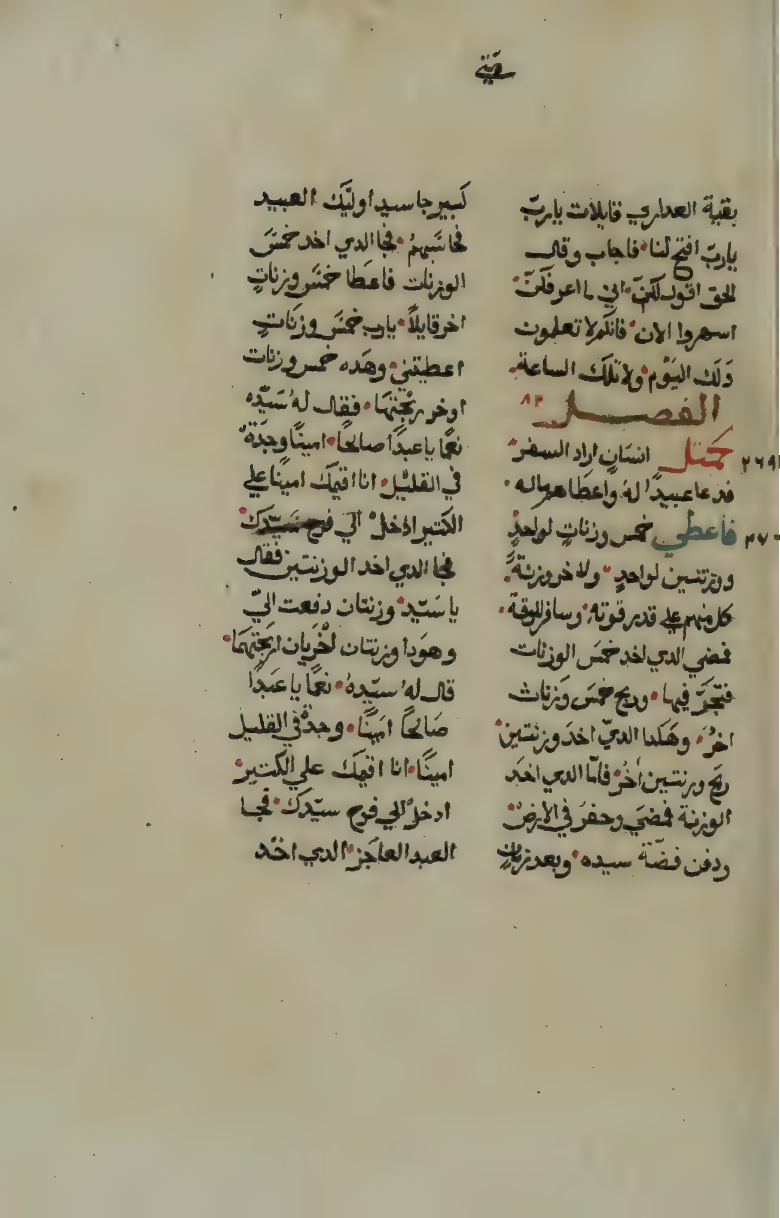 بقية العداري قايلات يارب
يارب افتح لنا فاجاب وقال
الحق اقول لكن اني ما اعرفكن
اسهروا الان فانكم لا تعلمون
دلك اليوم ولا تلك الساعة
الفصل ٨٣
كمثل انسان اراد السفر
٢٦٩
فدعا عبيدا له واعطاهم ماله
فاعطي خمس وزنات لواحد
٢٧٠
ووزنتين لواحد ولاخر وزنة
كل منهم علي قدر قوته وسافر للوقت
فمضي الدي اخد خمس الوزنات
فتجر فيها وربح خمس وزنات
اخر وهكدا الدي اخد وزنتين
ربح وزنتين اخر فاما الدي اخد
الوزنة فمضي وحفر في الارض
ودفن فضة سيده وبعد زمان
كبير جا سيد اوليك العبيد
فحاسبهم فجا الدي اخد خمس
الوزنات فاعطا خمس وزنات
اخر قايلا يارب خمس وزنات
اعطيتني وهده خمس وزنات
اوخر ربحتها فقال له سيده
نعما يا عبدا صالحا امينا وجدة
في القليل انا اقيمك امينا علي
الكتير ادخل الي فرح سيدك
فجا الدي اخد الوزنتين فقال
يا سيد وزنتان دفعت الي
وهودا وزنتان اخريان اربحتهما
قال له سيده نعما يا عبدا
صالحا امينا وجدة في القليل
امينا انا اقيمك علي الكتير
ادخل الي فرح سيدك فجا
العبد العاجز الدي اخد